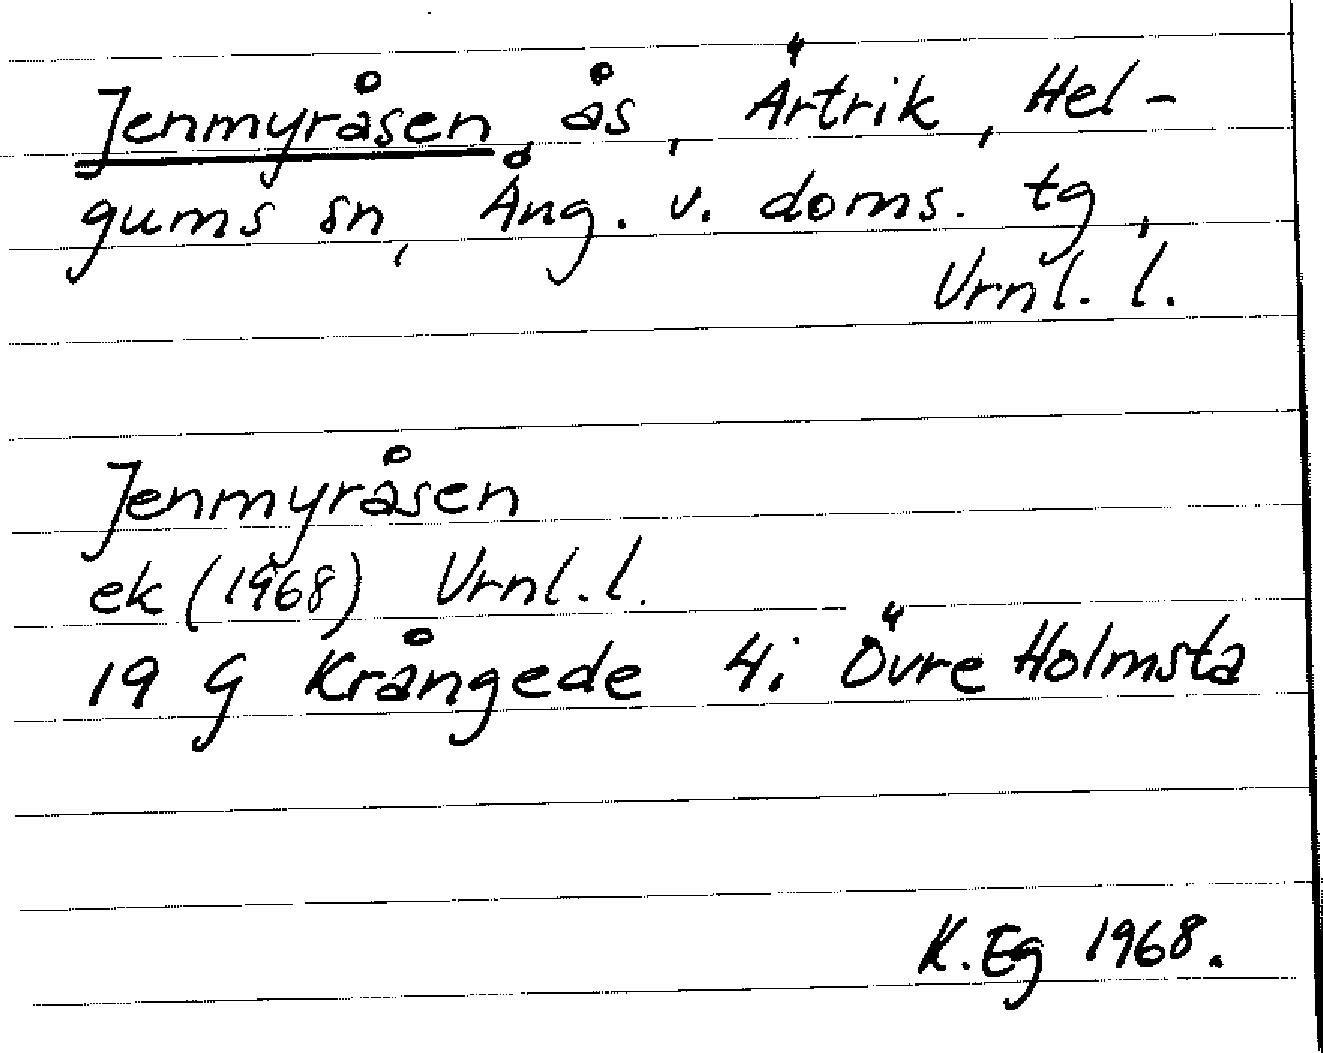 Jenmyråsen, ås, Ärtrik, Hel-
gums sn, Ång. v. doms. tg,
Urnl. l.
Jenmyråsen
ek (1968) Urnl. l.
19 G Krångede 4i Övre Holmsta
K. Eg 1968.